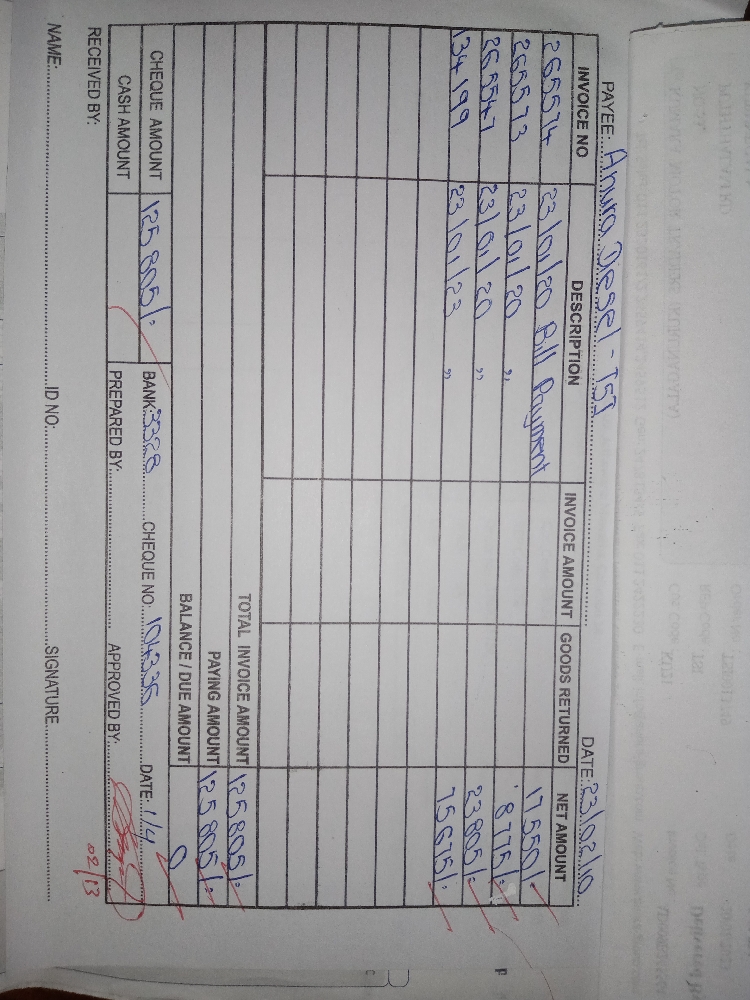 PAYEE: Anura Diesel - TSI DATE: 23/02/10
INVOICE NO DESCRIPTION INVOICE AMOUNT GOODS RETURNED NET AMOUNT
265574 23/01/20 Bill Payment 17550/-
265573 23/01/20 " 8775/-
265547 23/01/20 " 23805/-
134199 23/01/23 " 75675/-
TOTAL INVOICE AMOUNT 125805/-
PAYING AMOUNT 125805/-
BALANCE / DUE AMOUNT 0
CHEQUE AMOUNT 125805/- BANK: 3328 CHEQUE NO: 104336 DATE: 1/4
CASH AMOUNT PREPARED BY: APPROVED BY:
02/13
RECEIVED BY:
NAME: ID NO: SIGNATURE